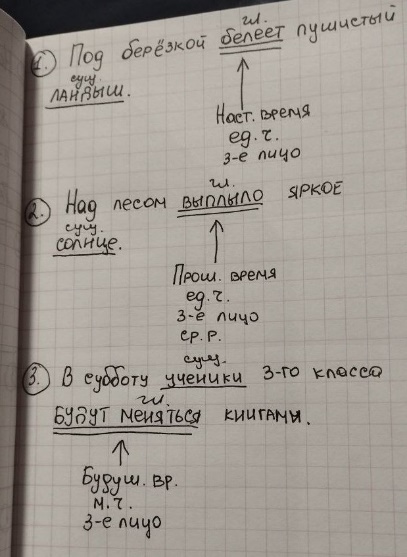 1. Под берёзкой белеет пушистый
гл.
сущ.
ландыш.
Наст. время
ед. ч.
3-е лицо
2. Над лесом выплыло яркое
гл.
сущ.
солнце.
Прош. время
ед. ч.
3-е лицо
ср. р.
сущ.
3. В субботу ученики 3-го класса
гл.
будут меняться книгамы.
Будуш. вр.
м. ч.
3-е лицо